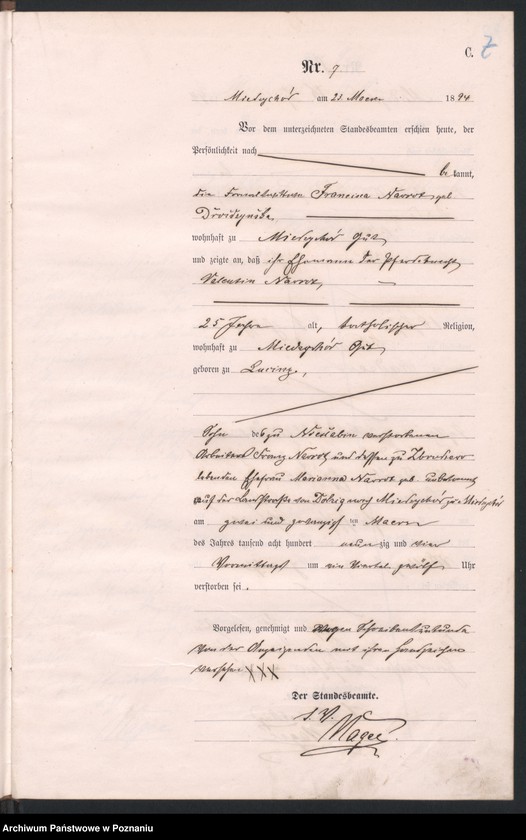 C. 7
Nr. 7
Miedzychód am 23 Maerz 1894
Vor dem unterzeichneten Standesbeamten erschien heute, der
Persönlichkeit nach
bekannt,
die Francisca Nawrot geb
wohnhaft zu Miedzychód Gut
und zeigte an, daß ihr Ehemann der Pferdeknecht
Valentin Nawrot,
25 Jahre alt, katholischer Religion,
wohnhaft zu Miedzychód Gut,
geboren zu
Sohn des zu verstorbenen
Arbeiters Franz Nawrot und dessen zu
lebenden Ehefrau Marianna Nawrot geb unbekannt
auf der Landstraße von Dolzig nach Miedzychód zu Miedzychód
am zwei und zwanzigsten Maerz
des Jahres tausend acht hundert neunzig und vier
Vormittags um ein Viertel zwölf Uhr
verstorben sei.
Vorgelesen, genehmigt und wegen Schreibensunkunde
von der Anzeigenden mit ihren Handzeichen
versehen XXX
Der Standesbeamte.